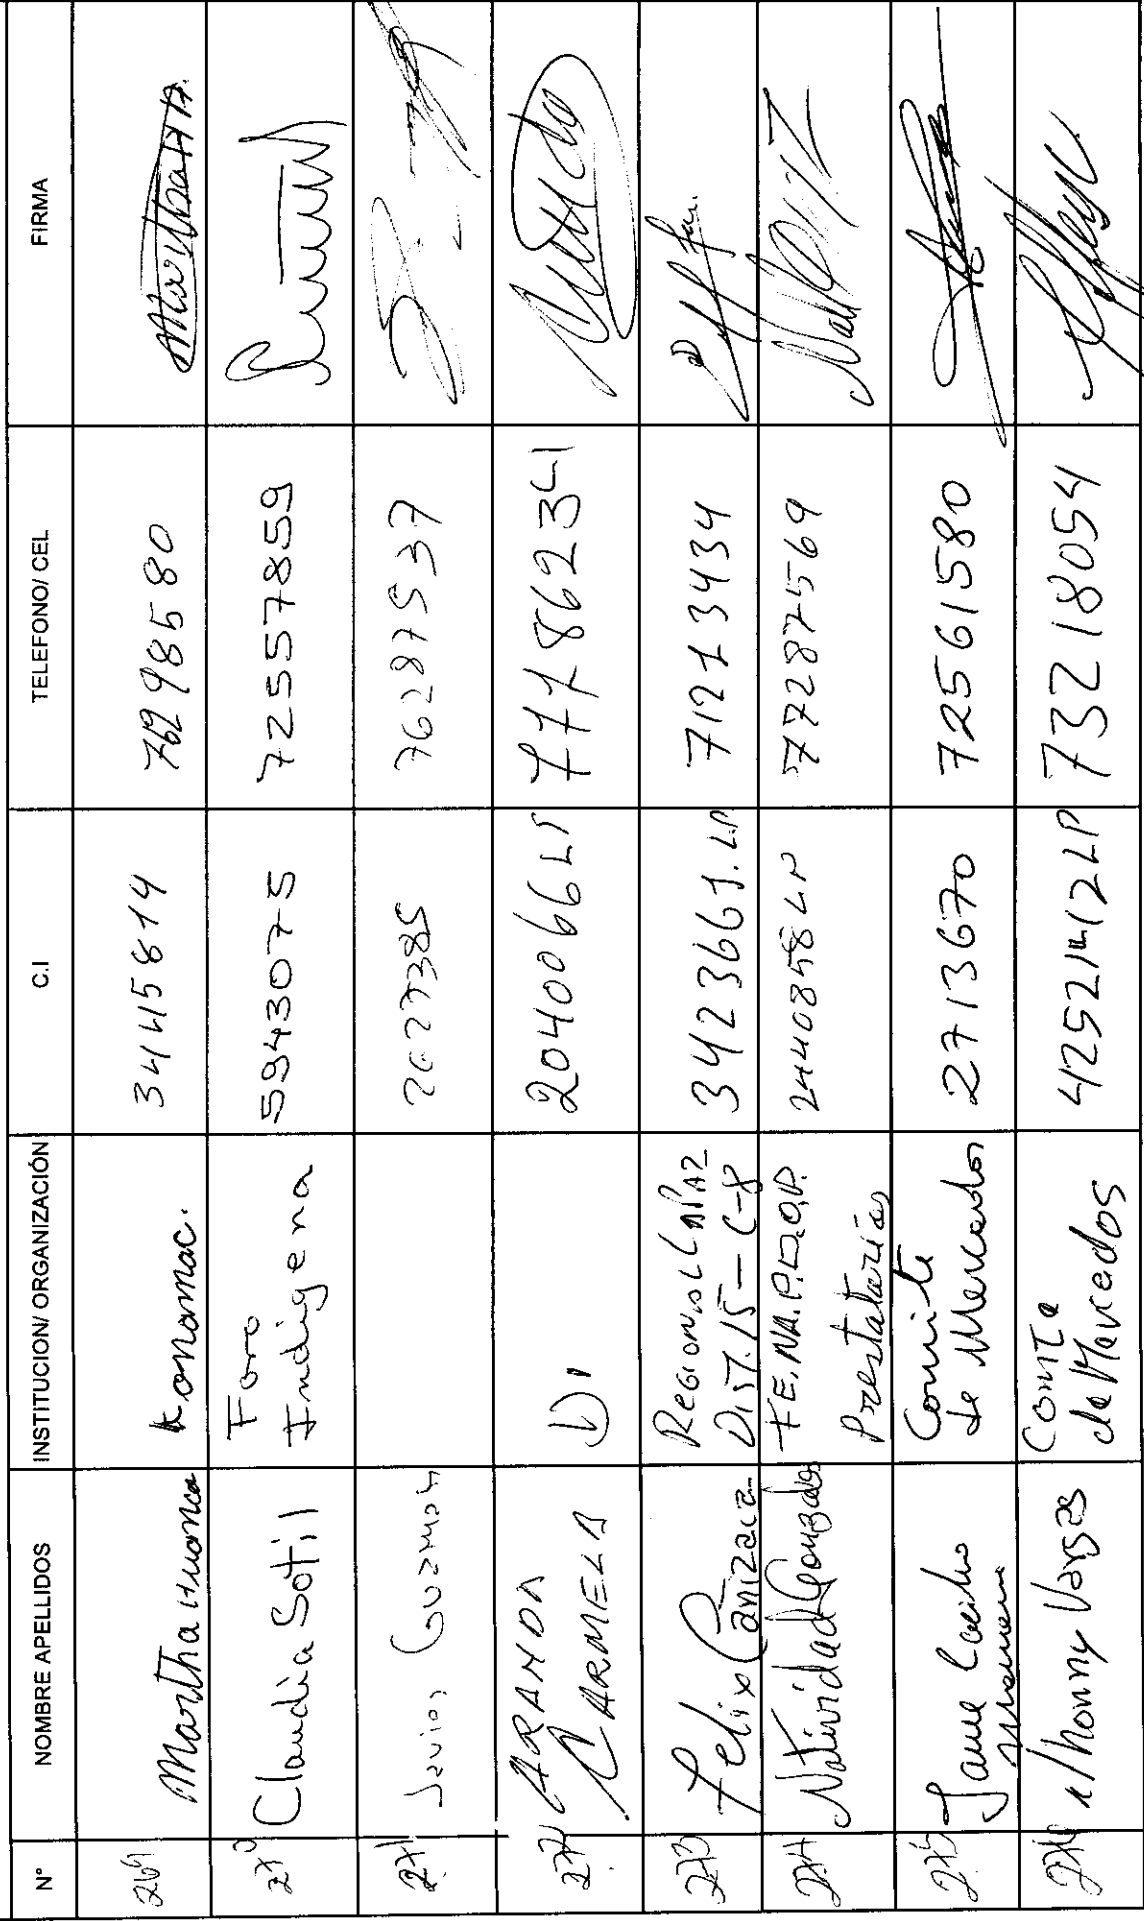 N° NOMBRE APELLIDOS INSTITUCION/ ORGANIZACIÓN C.I TELEFONO/ CEL FIRMA
269 Martha Huanca Konamac. 3445814 76298580
270 Claudia Sotil Foro Indigena 5943075 72557859
271 Javier Guzman 76287537
272 ARANDA CARMELA D1 2040066 LP 77786234
273 Felix Cañizaca Regional LAPAZ Dist. 15 - C-8 3423661. LP 71213434
274 Natividad Gonzales FE.NA.P.D.O.P. Prestatarios 2440858 LP 77287569
275 Jaime Mamani Comite de Mercados 2713670 72561580
276 Jhonny Vargas Comite de Mercados 4252142 LP 73218054